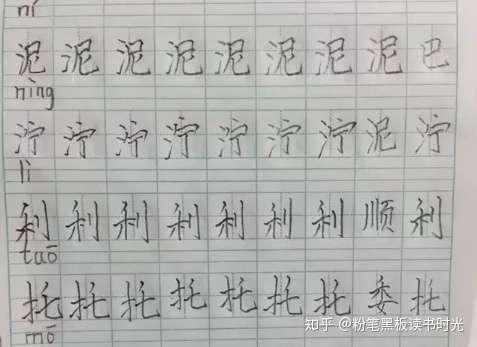 ní
泥泥泥泥泥泥泥泥巴
nìng
泞泞泞泞泞泞泞泥泞
lì
利利利利利利利顺利
tuō
托托托托托托托委托
mō
知乎 @粉笔黑板读书时光